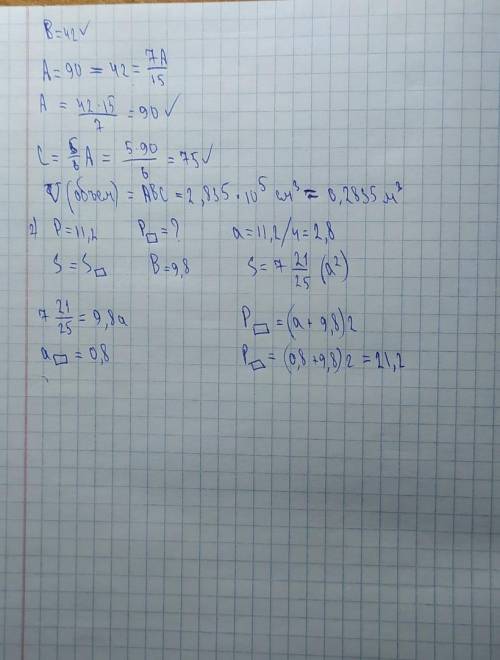 B=42✓
A=90 = 42 = 7A/15
A = 42·15/7 = 90 ✓
C = 5/6 A = 5·90/6 = 75 ✓
V (объем) = ABC = 2,835·10⁵ см³ = 0,2835 м³
2) P=11,2 P▭=? a=11,2/4=2,8
S=S▭ B=9,8 S=7 21/25 (a²)
7 21/25 = 9,8a P▭=(a+9,8)2
a▭=0,8 P▭=(0,8+9,8)2=21,2